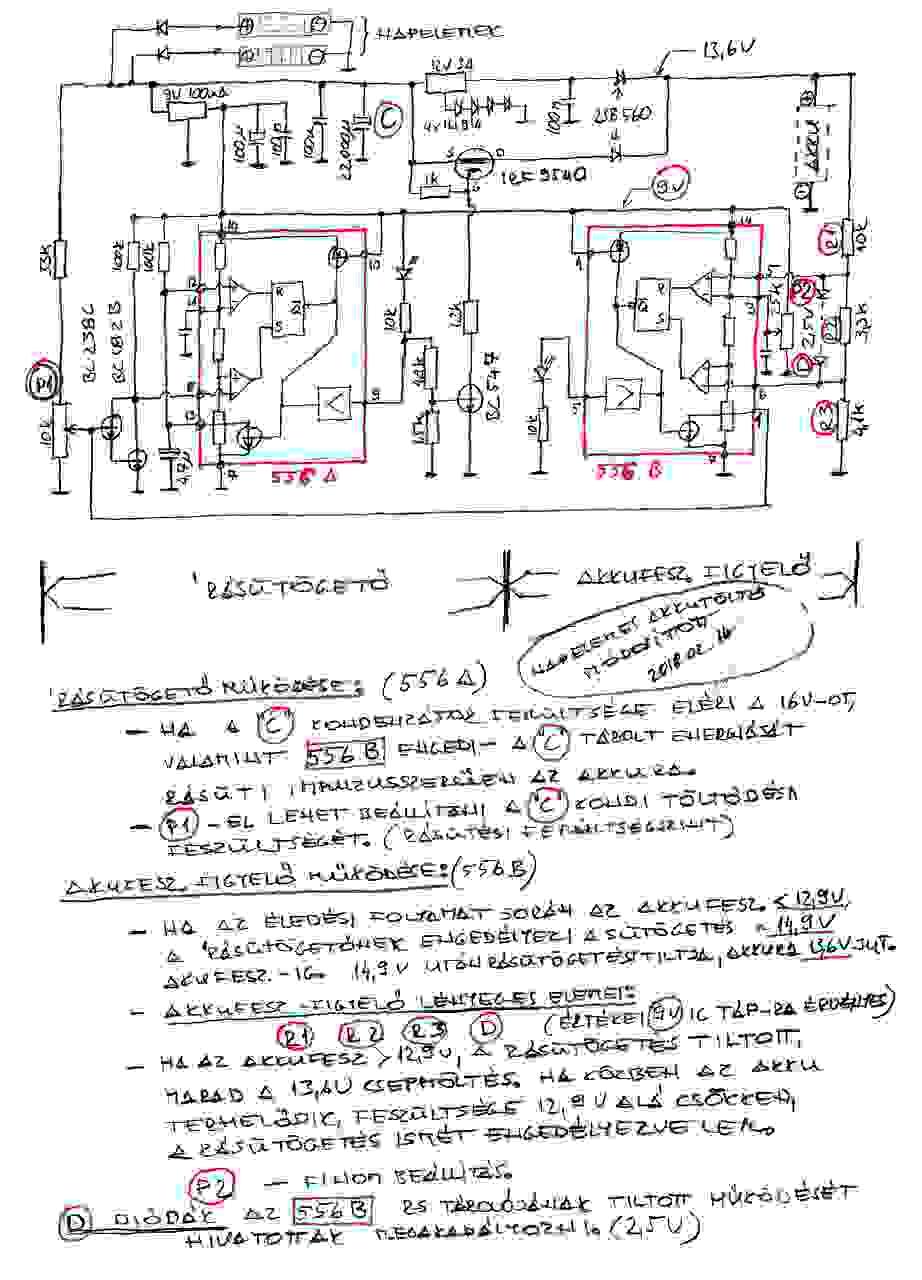 NAPELEMEK
13,6V
12V 3A
9V 100mA
4x1N914
100µ
100n
100n
22.000µ
C
100n
2SB560
AKKU
S
D
G
1k
IRF9540
9V
33k
100k
100k
BC238C
BC182B
P1
10k
4,7µ
R
S
Q
556 A
10k
1,5k
1,2k
BC547
10k
R
S
Q
556 B
14
P2
25k
2,5V
D
R1
10k
R2
3,3k
R3
9,1k
"RÁSÜTÖGETŐ
AKKUFESZ. FIGYELŐ
NAPELEMES AKKUTÖLTŐ
MÓDOSÍTOTT
RÁSÜTÖGETŐ MŰKÖDÉSE: (556A)
- HA A "C" KONDENZÁTOR FESZÜLTSÉGE ELÉRI A 16V-OT,
VALAMINT 556 B ENGEDI - A "C" TÁROLT ENERGIÁJÁT
RÁSÜTI IMPULZUSSZERŰEN AZ AKKURA.
- P1 -EL LEHET BEÁLLÍTANI A "C" KONDI TÖLTŐDÉSI
FESZÜLTSÉGÉT. (RÁSÜTÉSI FESZÜLTSÉGSZINT)
AKKUFESZ. FIGYELŐ MŰKÖDÉSE: (556B)
- HA AZ ÉLEDÉSI FOLYAMAT SORÁN AZ AKKUFESZ. < 12,9V,
A RÁSÜTÖGETŐNEK ENGEDÉLYEZI A SÜTÖGETÉS ≈ 14,9V
AKKUFESZ.-IG. 14,9V UTÁN RÁSÜTÖGETÉST TILTJA, AKKURA 13,6V JUT.
- AKKUFESZ-FIGYELŐ LÉNYEGES ELEMEI:
R1 R2 R3 D (ÉRTÉKEI 9V IC TÁP-RA ÉRVÉNYES)
- HA AZ AKKUFESZ > 12,9V, A RÁSÜTÖGETÉS TILTOTT,
MARAD A 13,6V CSEPPTÖLTÉS. HA KÖZBEN AZ AKKU
TERHELŐDIK, FESZÜLTSÉGE 12,9V ALÁ CSÖKKEN,
A RÁSÜTÖGETÉS ISMÉT ENGEDÉLYEZVE LESZ.
P2 - FINOM BEÁLLÍTÁS.
D DIÓDÁK AZ 556 B RS TÁROLÓJÁNAK TILTOTT MŰKÖDÉSÉT
HIVATOTTAK MEGAKADÁLYOZNI. (2,5V)